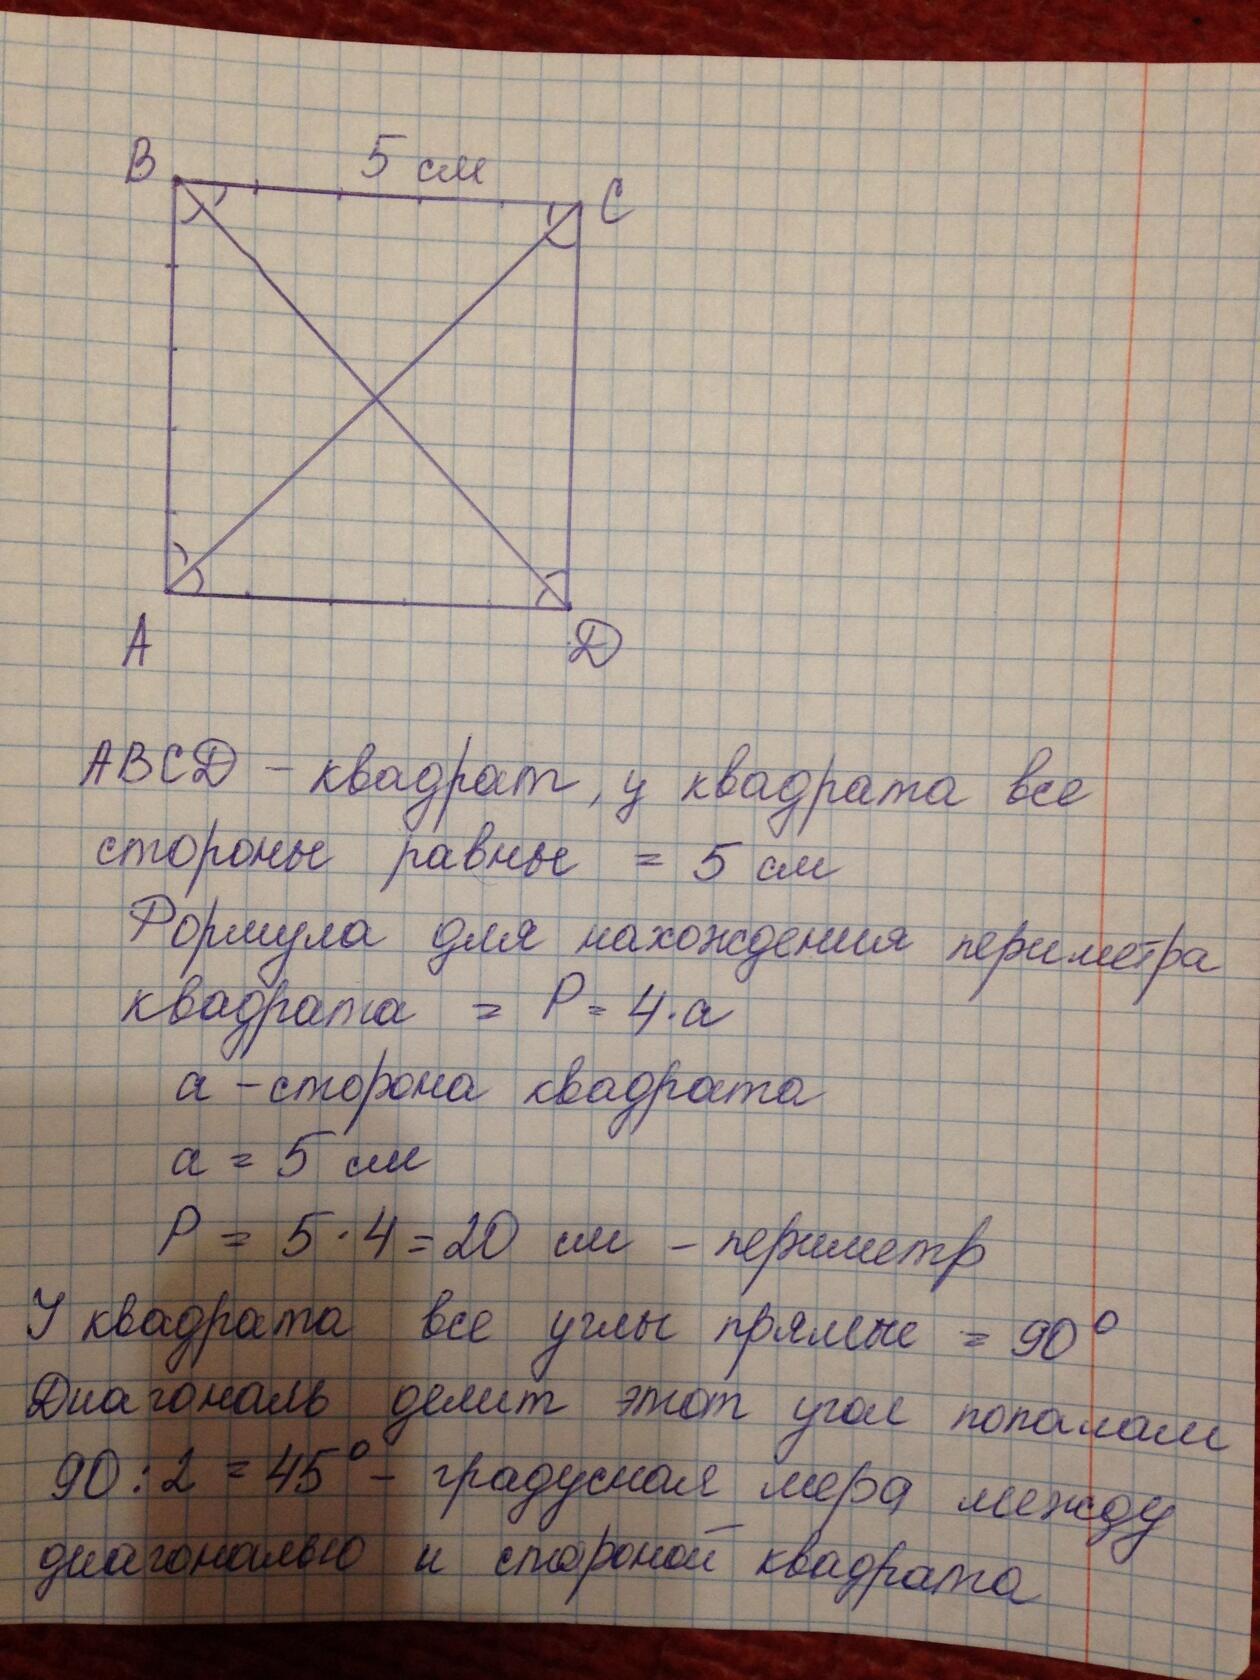 B 5 см C
A D
ABCD - квадрат, у квадрата все
стороны равны = 5 см
Формула для нахождения периметра
квадрата = P = 4·a
a - сторона квадрата
a = 5 см
P = 5·4 = 20 см - периметр
У квадрата все углы прямые = 90°
Диагональ делит этот угол пополам
90:2 = 45° - градусная мера между
диагональю и стороной квадрата